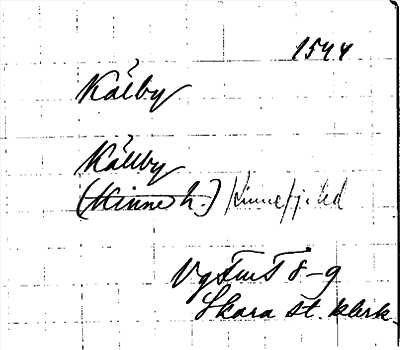 1544
Kálby
Kállby
(Kinne h.) Kinnefj.hd
Vg FmT 8-9
Skara st. klerk.